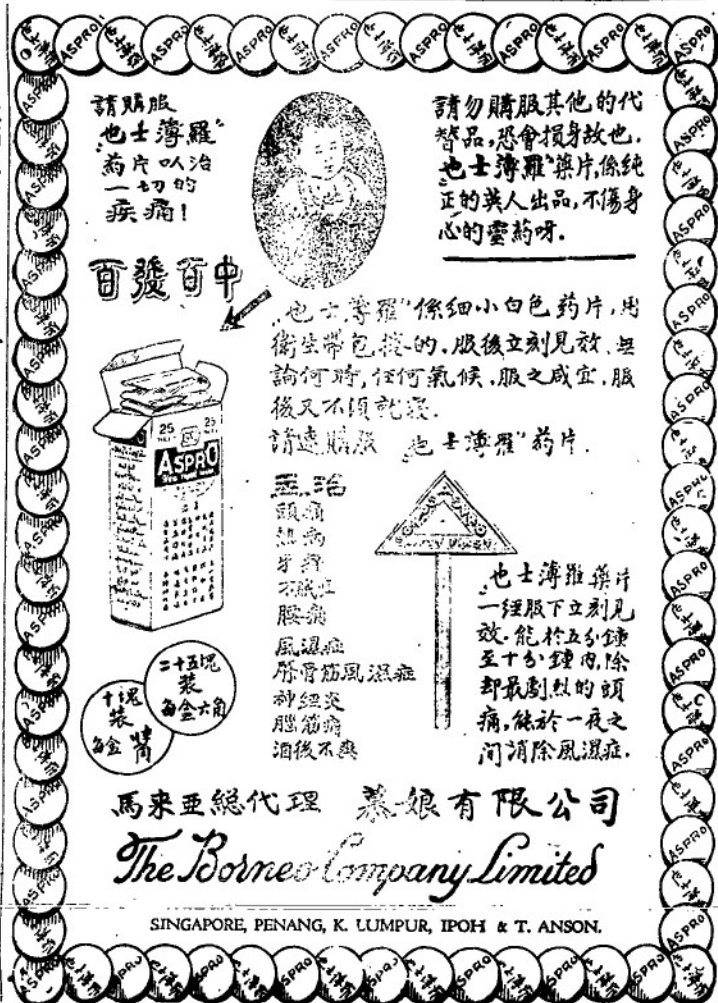 請購服
"也士薄羅"
药片以治
一切的
疾痛!
請勿購服其他的代
替品,恐會損身故也.
"也士薄羅"藥片,係純
正的英人出品,不傷身
心的靈药呀.
百發百中
"也士薄羅"係細小白色药片,用
衛生帶包捲的.服後立刻見效.無
論何時,任何氣候.服之咸宜.服
後又不須就寢.
請速購服 "也士薄羅"药片.
25
25
ASPRO
主治
頭痛
熱病
牙痛
不眠症
腰痛
風濕症
骨筋風濕症
神經炎
腦筋痛
酒後不爽
也士薄羅藥片
一經服下立刻見
效.能於五分鐘
至十分鐘內,除
却最劇烈的頭
痛,能於一夜之
间消除風濕症.
二十五塊
装
每盒六角
十塊
装
每盒
馬来亚総代理 慕娘有限公司
The Borneo Company Limited
SINGAPORE, PENANG, K. LUMPUR, IPOH & T. ANSON.